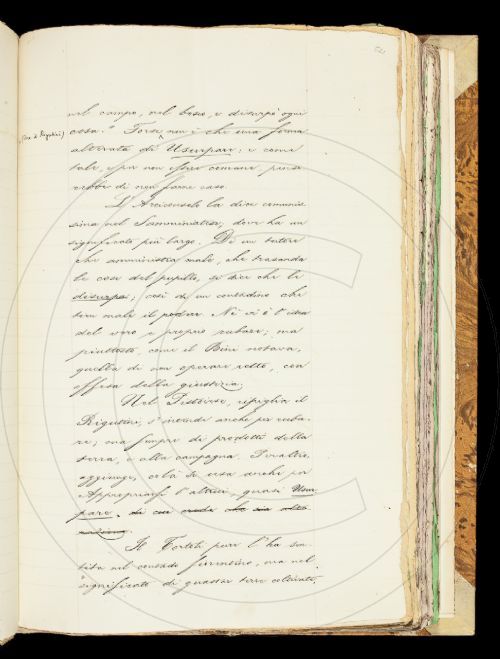 nel campo, nel bosco, e disurpò ogni
(Così il Rigutini)
cosa." Forse non è che una forma
alterata di Usurpare; e come
tale, e per non esser comune penso
crederei di non farne caso.
L'Arcicons la dice comunis
sima nel Samminiatese, dove ha un
significato più largo. Di un tutore
che amministra male, che trasanda
le cose del pupillo, si dice che le
disurpa; così di un contadino che
tien male il podere. Nè vi è l'idea
del vero e proprio rubare; ma
piuttosto, come il Bini notava,
quella di non operare retto, con
offesa della giustizia.
Nel Pistoiese, ripiglia il
Rigutini, s'intende anche per ruba-
re; ma sempre di prodotti della
terra, e alla campagna. Peraltro,
aggiunge, colà si usa anche per
Appropriarsi l'altrui, quasi Usur
pare, di cui credo che sia alte
razione.
Il Tortoli pure l'ha sen-
tita nel contado fiorentino, ma nel
significato di guastar terre coltivate,